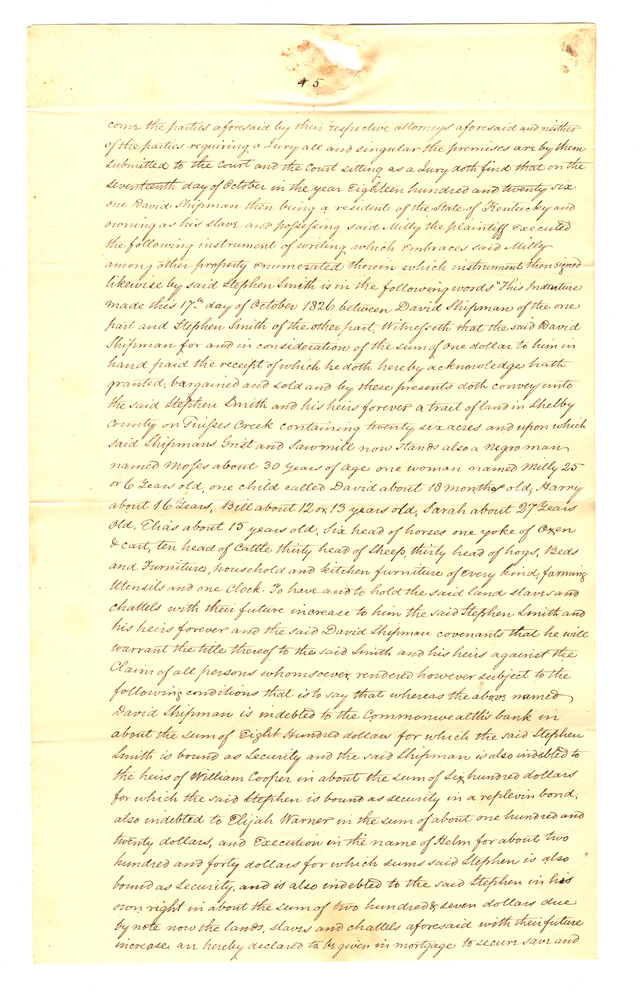 45
come the parties aforesaid by their respective attorneys aforesaid and neither
of the parties requiring a Jury all and singular the premises are by them
submitted to the Court and the Court sitting as a Jury doth find that on the
seventeenth day of October in the year Eighteen hundred and twenty six
one David Shipman then being a resident of the State of Kentucky and
owning as his slave and possessing said Milly the plaintiff executed
the following instrument of writing which Embraces said Milly
among other property enumerated therein which instrument then signed
likewise by said Stephen Smith is in the following words "This Indenture
made this 17th day of October 1826 between David Shipman of the one
part and Stephen Smith of the other part, Witnesseth that the said David
Shipman for and in consideration of the sum of One dollar to him in
hand paid the receipt of which he doth hereby acknowledge hath
granted, bargained and sold and by these presents doth convey unto
the said Stephen Smith and his heirs forever a trait of land in Shelby
County on Creek containing twenty six acres and upon which
said Shipmans Grist and Sawmill now stands also a Negro man
named Moses about 30 years of age one woman named Milly 25
or 6 years old, one child called David about 18 months old, Harry
about 16 Years, Bill about 12 or 13 years old, Sarah about 27 Years
Old, Elias about 15 years old, Six head of horses one yoke of Oxen
& cart, ten head of Cattle thirty head of Sheep, thirty head of hogs, Beds
and Furniture, household and kitchen furniture of every kind, farming
Utensils and one Clock. To have and to hold the said land slaves and
chattels with their future increase to him the said Stephen Smith and
his heirs forever and the said David Shipman covenants that he will
warrant the title thereof to the said Smith and his heirs against the
Claim of all persons whomsoever rendered however subject to the
following conditions that is to say that whereas the above named
David Shipman is indebted to the Commonwealths bank in
about the sum of Eight Hundred dollars for which the said Stephen
Smith is bound as Security and the said Shipman is also indebted to
the heirs of William Cooper in about the sum of Six hundred dollars
for which the said Stephen is bound as security in a replevin bond;
also indebted to Elijah Warner in the sum of about one hundred and
twenty dollars, and Execution in the name of Helm for about two
hundred and forty dollars for which sums said Stephen is also
bound as Security, and is also indebted to the said Stephen in his
own right in about the sum of two hundred & seven dollars due
by note now the lands, slaves and chattels aforesaid with their future
increase are hereby declared to be given in mortgage to secure save and